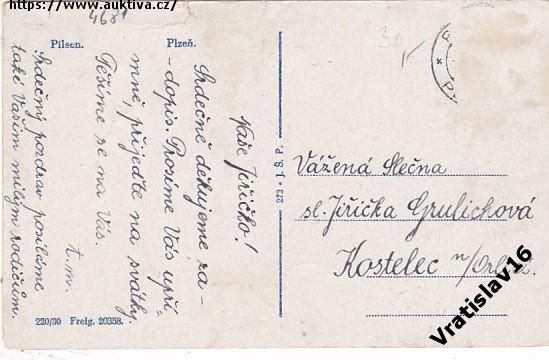 https://www.auktiva.cz/
4681
Pilsen.
Plzeň.
Naše Jiřičko!
Srdečně děkujeme za-
-dopis. Prosíme Vás upří-
mně, přijeďte na svátky.
Těšíme se na Vás.
t. m.
Srdečný pozdrav posíláme
také Vašim milým rodičům.
220/30 Freig. 20358.
372 * I. Š. P.
Vážená Slečna
sl. Jiřička Grulichová
Kostelec n/Orlicí.
Vratislav16